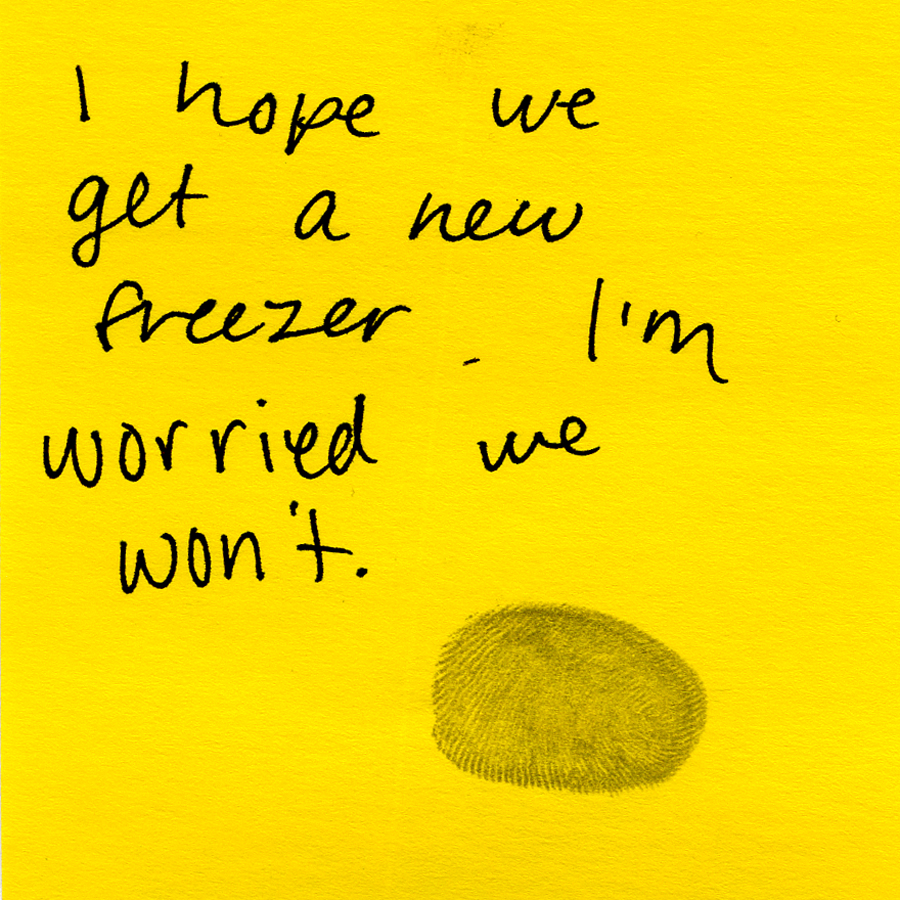 I hope we
get a new
freezer. I'm
worried we
won't.